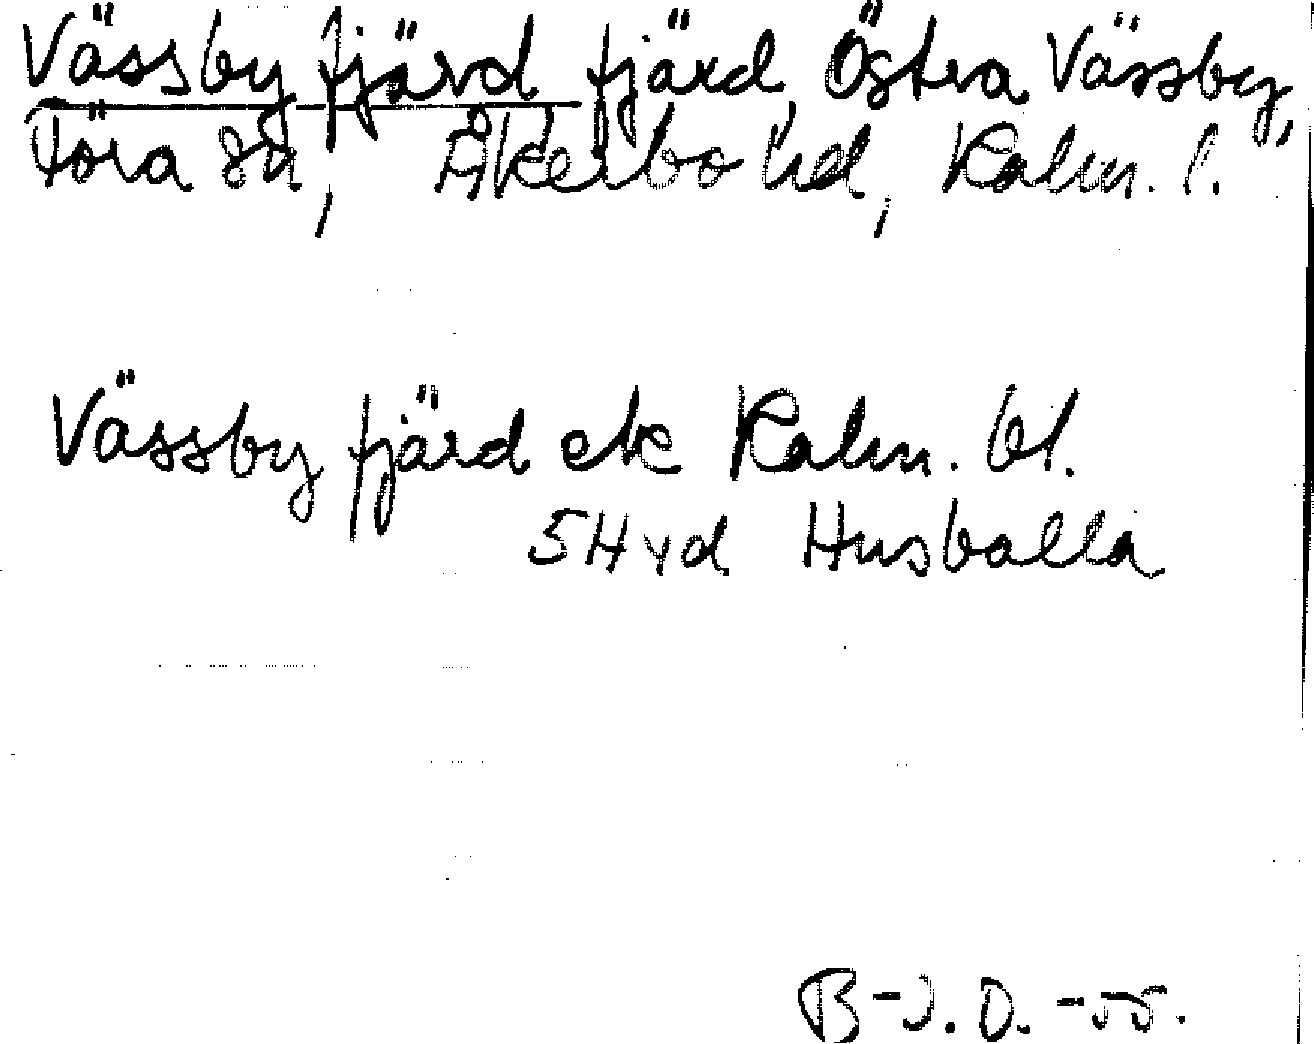 Vässby fjärd fjärd, Östra Vässby,
Föra sn, Åkerbo hd, Kalm. l.
Vässby fjärd ek Kalm. bl.
5H yd Husvalla
B-J. O. -55.